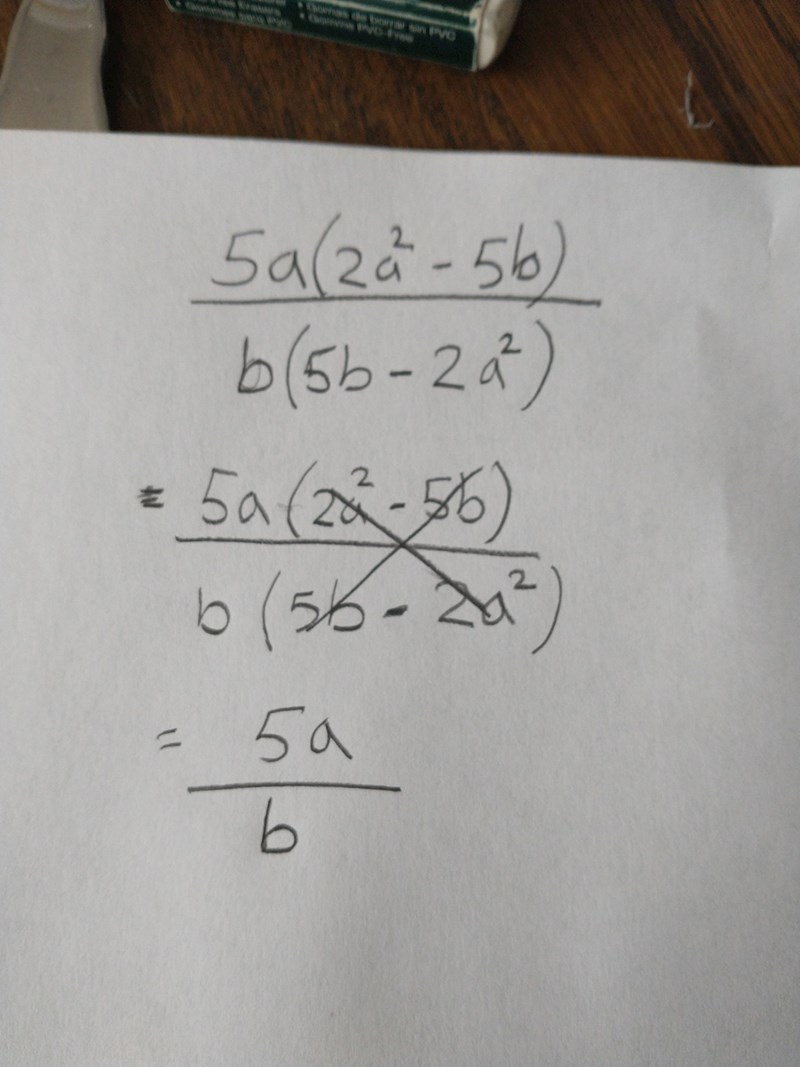 • Gomas de borrar sin PVC
• Gommes sans PVC • Gomme PVC-Free
5a(2a² - 5b)
b(5b - 2a²)
= 5a(2a² - 5b)
b(5b - 2a²)
= 5a
b